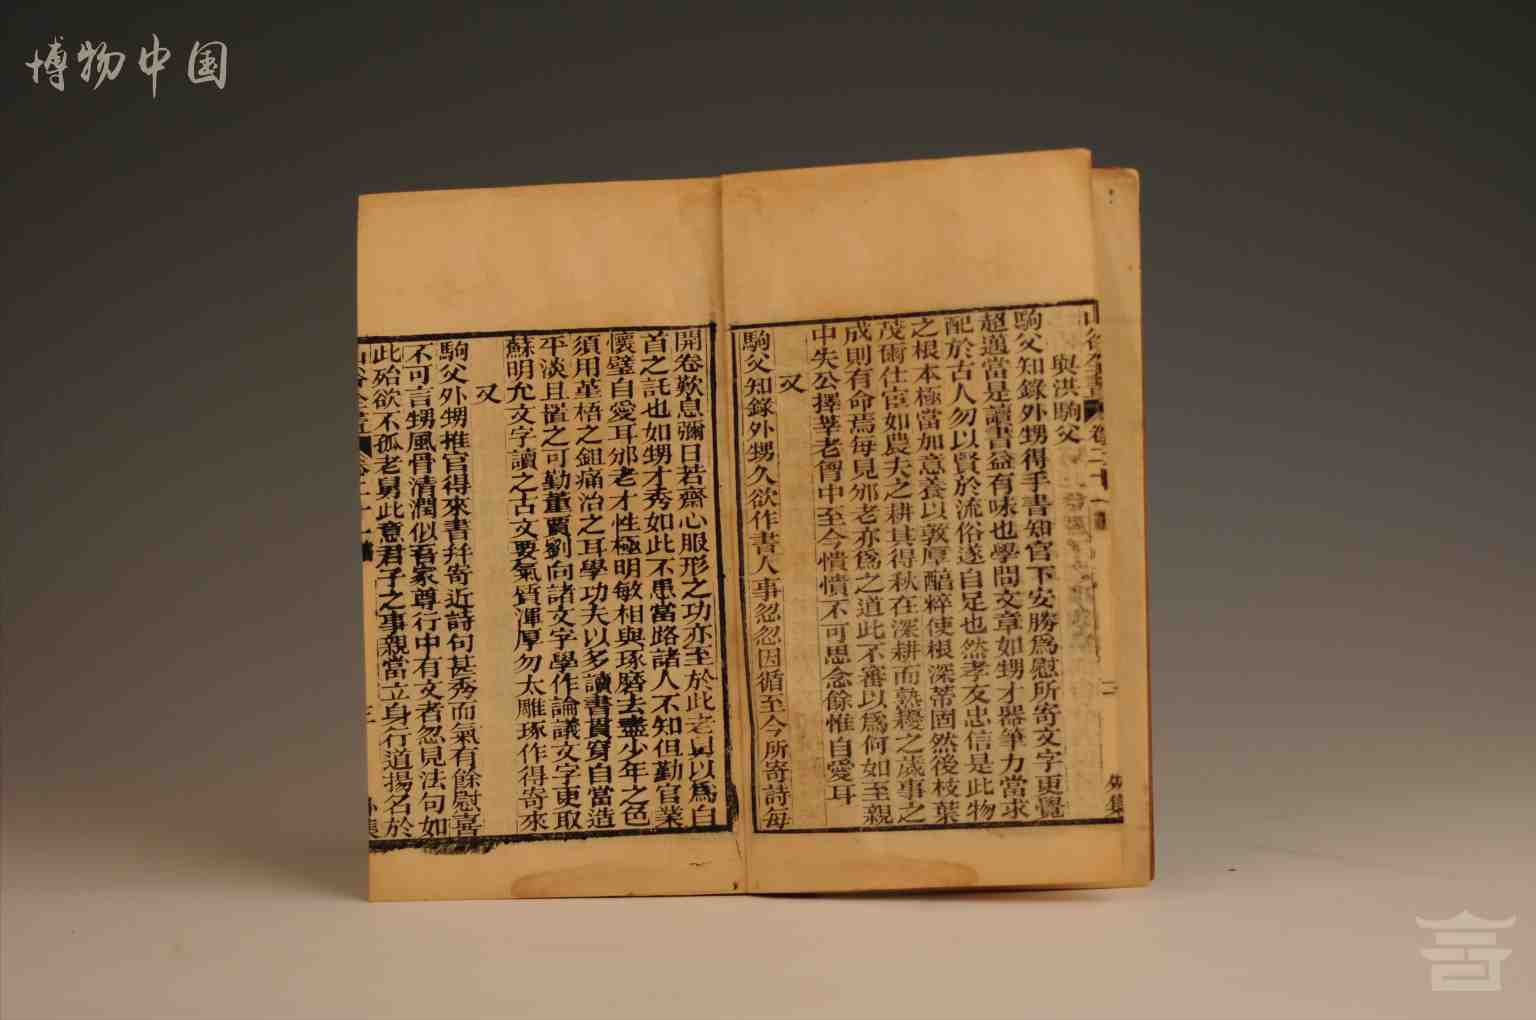 博物中国
與洪駒父
駒父知錄外甥得手書知官下安勝爲慰所寄文字更覺
超邁當是讀書益有味也學問文章如甥才器筆力當求
配於古人勿以賢於流俗遂自足也然孝友忠信是此物
之根本極當加意養以敦厚醇粹使根深蒂固然後枝葉
茂爾仕宦如農夫之耕其得秋在深耕而熟耰之歲事之
成則有命焉每見邠老亦爲之道此不審以爲何如至親
中失公擇莘老胷中至今憒憒不可思念餘惟自愛耳
又
駒父知錄外甥久欲作書人事忽忽因循至今所寄詩每
開卷歎息彌日若齋心服形之功亦至於此老舅以爲白
首之託也如甥才秀如此不患當路諸人不知但勤官業
懷璧自愛耳邠老才性極明敏相與琢磨去盡少年之色
須用菫梧之鉏痛治之耳學功夫以多讀書貫穿自當造
平淡且置之可勤董賈劉向諸文字學作論議文字更取
蘇明允文字讀之古文要氣質渾厚勿太雕琢作得寄來
又
駒父外甥推官得來書幷寄近詩句甚秀而氣有餘慰喜
不可言甥風骨清潤似吾家尊行中有文者忽見法句如
此殆欲不孤老舅此意君子之事親當立身行道揚名於
山谷全書
卷二十一
三
外集